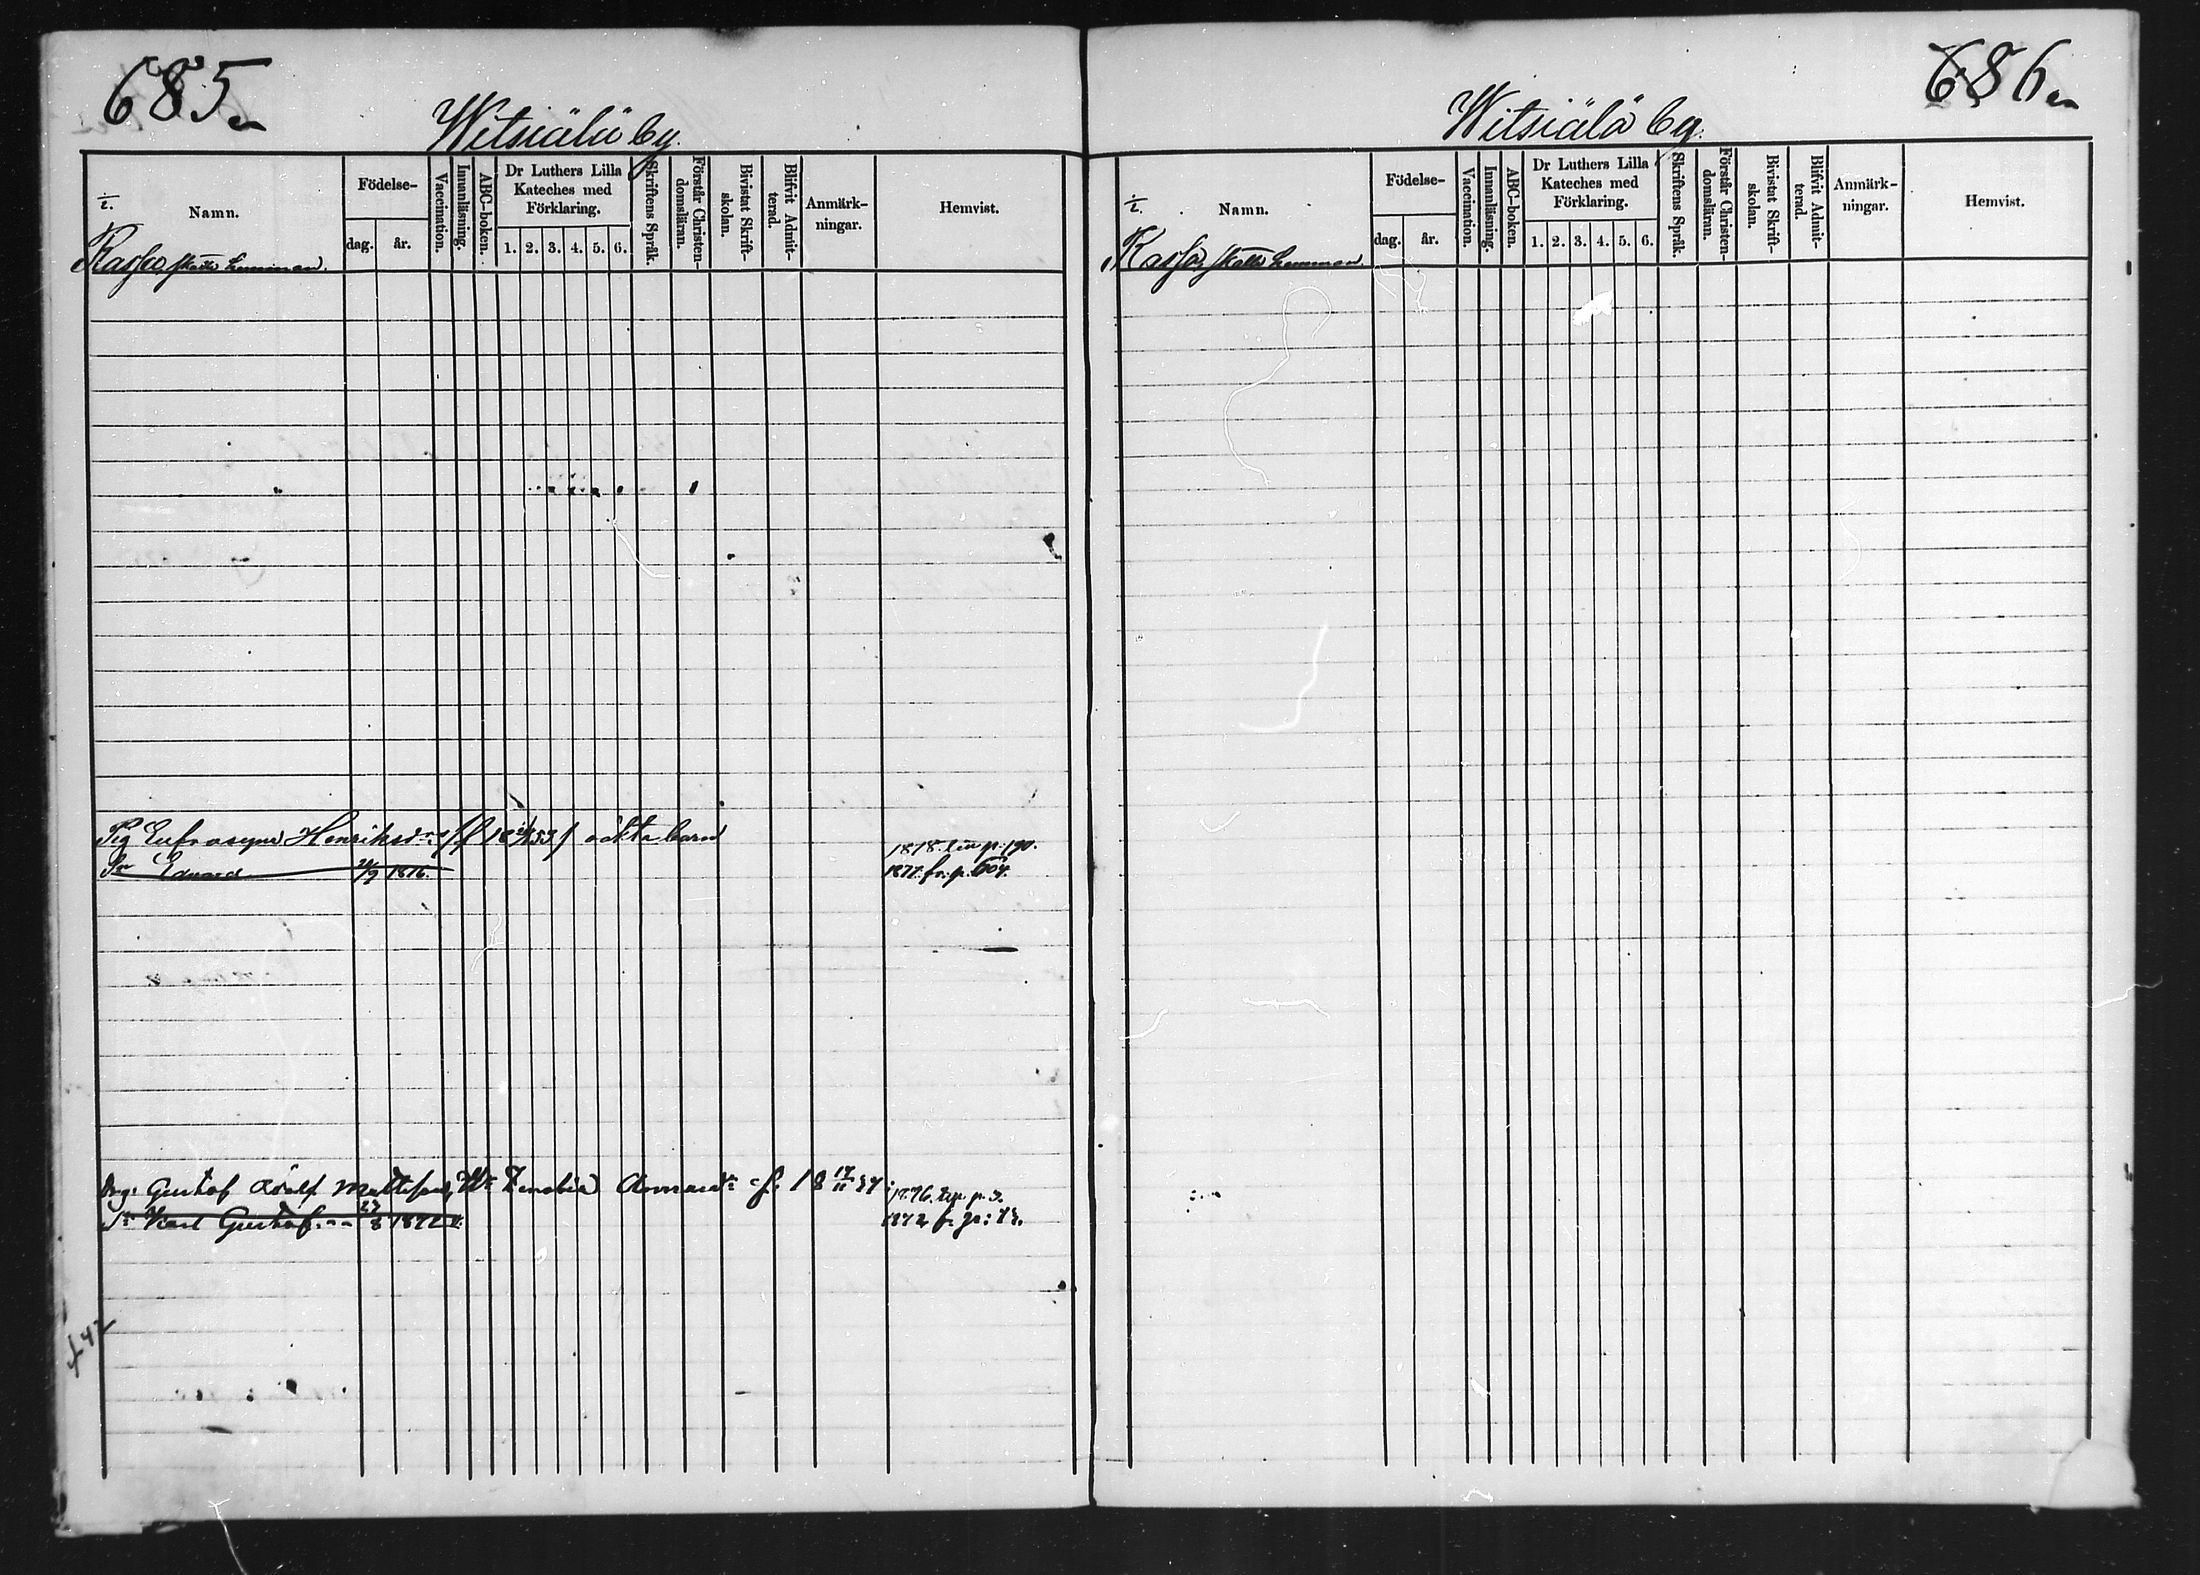 685
Witsiälä by.
Namn.
Födelse-
dag.
år.
Vaccination.
Innanläsning.
ABC-boken.
Dr Luthers Lilla
Kateches med
Förklaring.
1. 2. 3. 4. 5. 6.
Skriftens Språk.
Förstår Christen-
domsläran.
Bivistat Skrift-
skolan.
Blifvit Admit-
terad.
Anmärk-
ningar.
Hemvist.
skatte hemman.
Pig Eufrosyne Henriksd:r oäkta barn
1878. p. 190.
Sn Edvard 1876.
1877. fr. p. 604.
Gustaf Adolf Mattsson, H:u Zenobia f. 18 17/11 47:
1876. p. 3.
Sn Karl Gustaf 27/8 1872
1872 fr. p:
686
Witsiälä by.
Namn.
Födelse-
dag.
år.
Vaccination.
Innanläsning.
ABC-boken.
Dr Luthers Lilla
Kateches med
Förklaring.
1. 2. 3. 4. 5. 6.
Skriftens Språk.
Förstår Christen-
domsläran.
Bivistat Skrift-
skolan.
Blifvit Admit-
terad.
Anmärk-
ningar.
Hemvist.
skatte hemman.